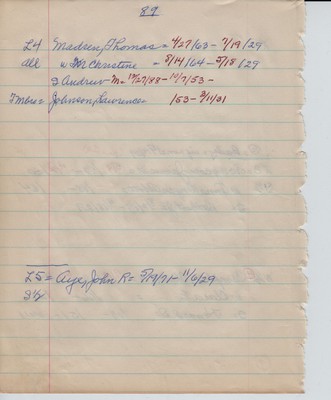 89
L4 Madsen, Thomas = 4/27/63 - 7/19/29
all w M Christine = 8/14/64 - 5/18/29
S Andrew - M = 12/27/88 - 10/7/53 -
Johnson, Lawrence /53 - 3/11/31
L5 = Aye, John R = 5/19/71 - 11/6/29
S ½